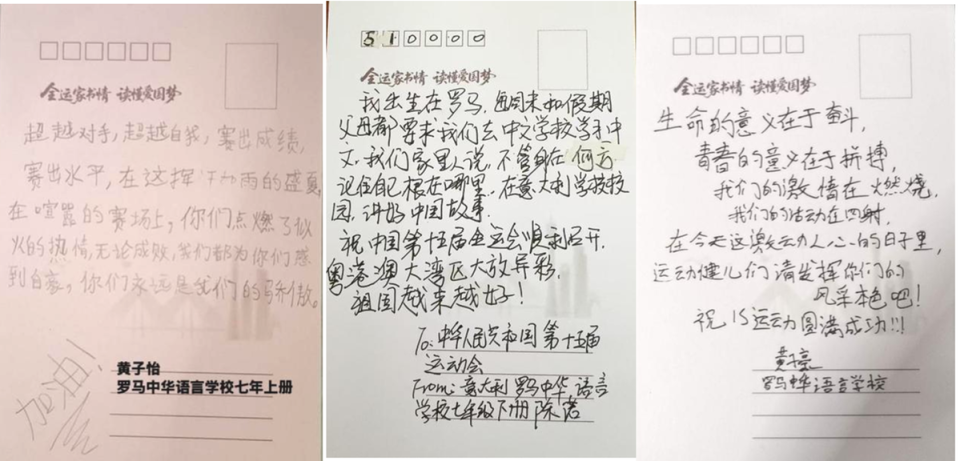 全运家书情 读懂爱国梦
超越对手，超越自我，赛出成绩，
赛出水平，在这挥汗如雨的盛夏
在喧嚣的赛场上，你们点燃了似
火的热情，无论成败，我们都为你们感
到自豪，你们永远是我们的骄傲。
加油！
黄子怡
罗马中华语言学校七年上册
510000
全运家书情 读懂爱国梦
我出生在罗马，每周末和假期
父母都要求我们去中文学校学习中
文，我们家里人说，不管身在何方
记住自己根在哪里，在意大利学校校
园，讲好中国故事.
祝中国第十五届全运会顺利召开，
粤港澳大湾区大放异彩，
祖国越来越好！
To: 中华人民共和国第十五届
运动会
From: 意大利罗马中华语言
学校七年级下册 陈诺
全运家书情 读懂爱国梦
生命的意义在于奋斗，
青春的意义在于拼搏，
我们的激情在燃烧，
我们的活动在四射，
在今天这激动人心的日子里，
运动健儿们请发挥你们的
风采本色吧！
祝15运动圆满成功!!!
黄子亮
罗马中华语言学校